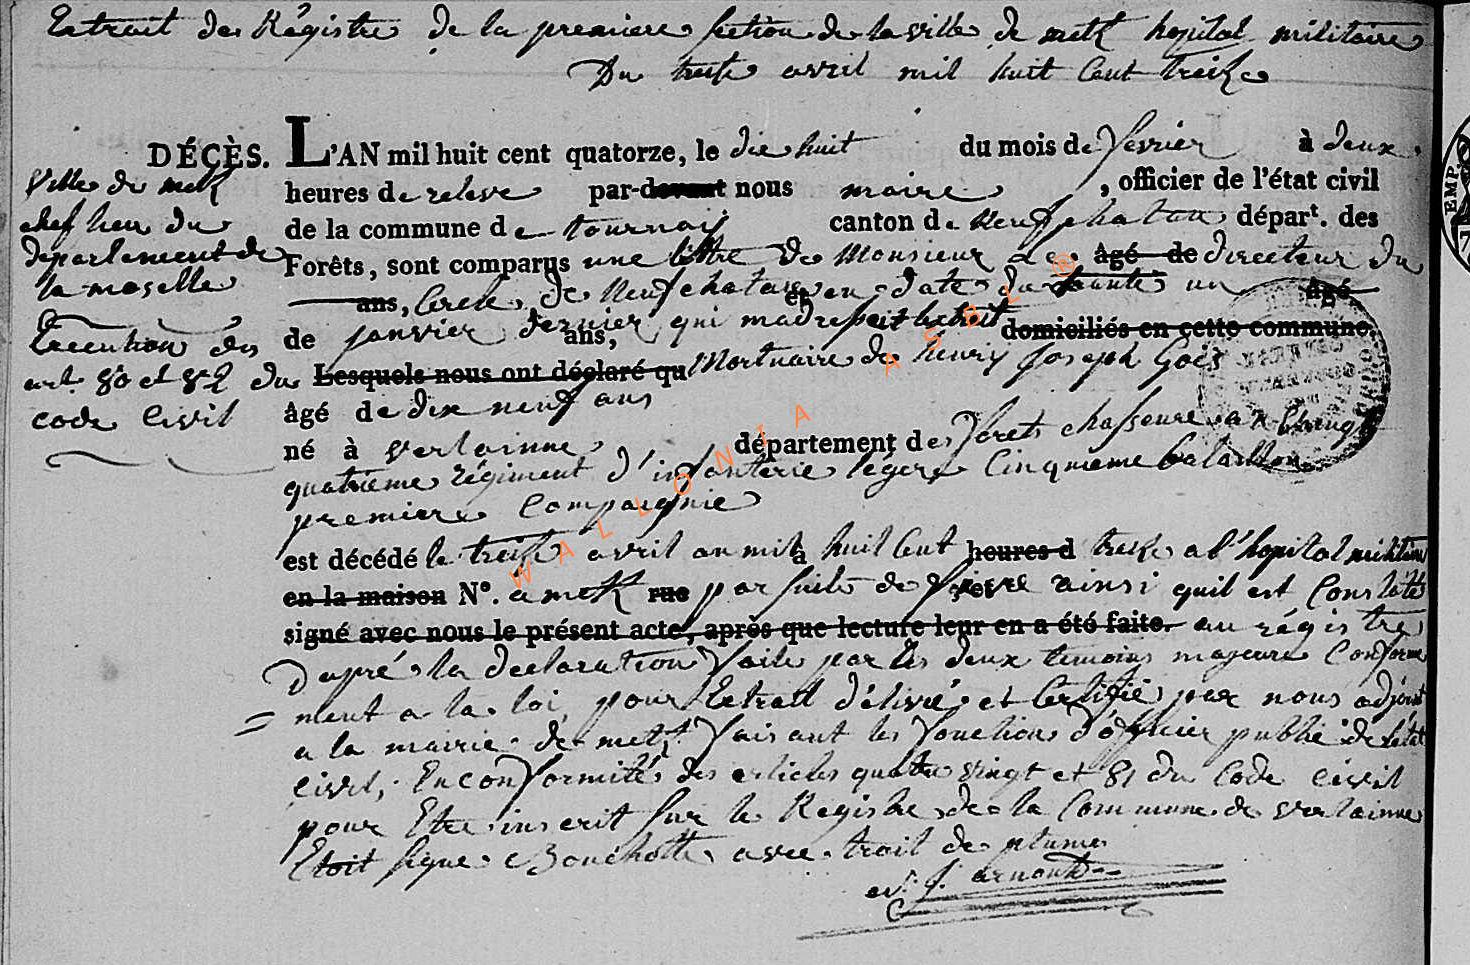 Extrait des Régistres de la premiere section de la ville de metz hopital militaire
Du treise avril mil huit Cent treize
DÉCÈS. L'AN mil huit cent quatorze, le dix huit du mois de fevrier à deux
heures de releve par-devant nous maire, officier de l'état civil
de la commune de tournay canton de neufchateau dépar<sup>t</sup>. des
Forêts, sont comparus une lettre de Monsieur Le âgé de directeur du
ans, Cercle de Neufchateau et en date du trante un âgé
de janvier dernier ans, qui madresse lextrait domiciliés en cette commune.
Lesquels nous ont déclaré qu Mortuaire de henry Joseph Goës
âgé de dix neuf ans
né à verlainne département des forets chasseure au vingt
quatrieme régiment d'infanterie légere Cinquieme bataillon
premiere Compagnie
est décédé le treise avril an mil à huit Cent heures d treize a l'hopital militaire
en la maison N°. a metz rue par suite de fievre ainsi quil est Constaté
signé avec nous le présent acte, après que lecture leur en a été faite. au régistre
Dapré la declaration faite par les deux temoins majeure Conforme
ment a la loi, pour Extrait délivré et Certifié par nous adjoint
a la mairie de metz faisant les fonctions d'officier public de létat
Civil, En conformité des articles quatre vingt et 81 du Code Civil
pour Etre inscrit sur le Registre de la Commune de verlainne
Etoit signe Bouchotte avec trait de plume
J. arnould
Ville de metz
chef lieu du
departement de
la moselle
Execution des
art. 80 et 82 du
code Civil
WALLONIA ASBL ®
EMP.